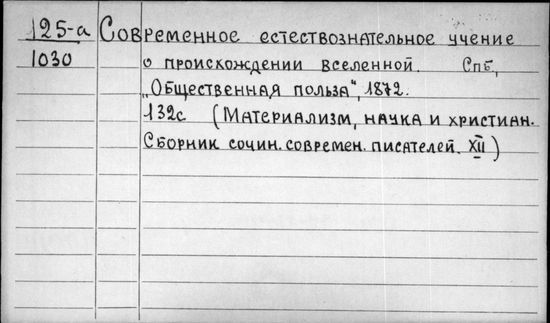 125-а Современное естествознательное учение
1030 о происхождении вселенной. Спб,
„Общественная польза", 1872.
132с (Материализм, наука и христиан.
Сборник сочин. современ. писателей. XII)